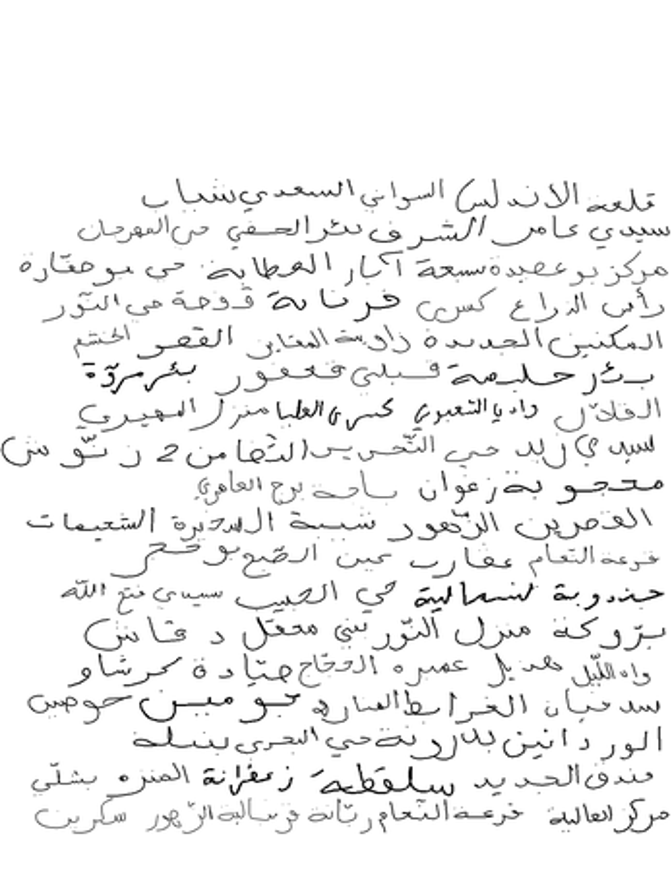 قلعة الاندلس السواني السعدي شباب
سيدي عامر الشرف بئر الحفي حي المهرجان
مركز بو عصيدة سبعة آبار العطاية حي بو حقارة
رأس الذراع كسرى فرنانة قوحة حي النّور
المكنين الجديدة زاوية المقاين القصر الختم
بئر حليمة قبلي قعفور بئر مروّة
القلال واديا الشعبوني كسرى العليا منزل المهيري
سيدي زيد حي التّحرير الثامن 2 زنّوش
معجوبة زغوان ساحة برج العامري
القصرين الزّهور شبيبة السخيرة الشعيمات
خرعة النعام عقارب عين الضّبع بو فحجر
جندوبة الشمالية حي الحبيب سيدي فتح الله
بزّوكة منزل النّور بني معقل دقاش
واد اللّيل هذيل عميره الحجّاج صيّادة بحرشاو
سد حيان الخرايط المنارة بومين حوصين
الوردانين بلاّرونة حي البحري بنبلة
فندق الجديد سلقطة زعفرانة المنزه بشلّي
مركز العالية خرعة النعام رنّانة فرسالية الزّهور سكرين